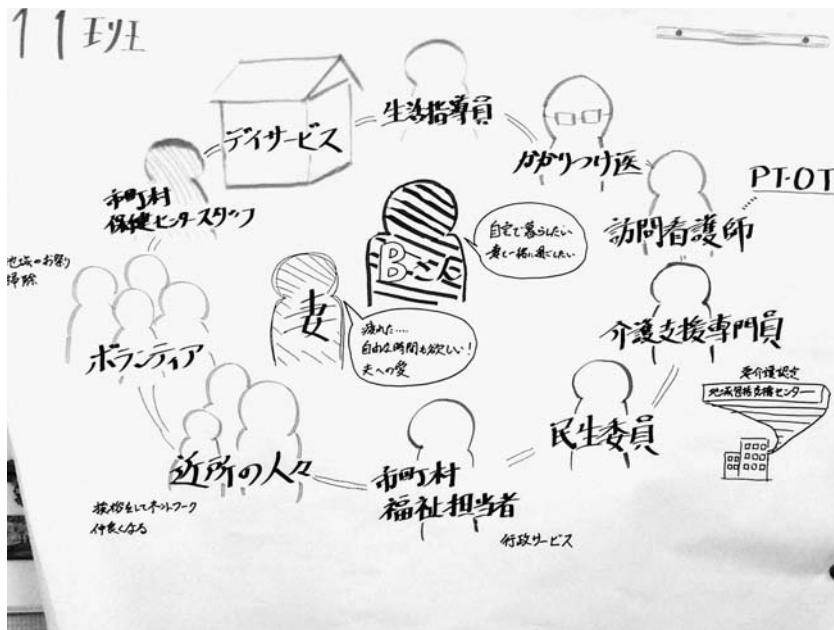 11班
デイサービス
生活指導員
かかりつけ医
PT・OT
訪問看護師
市町村
保健センタースタッフ
地域のお祭り
掃除
B
自宅で暮らしたい
妻と一緒に過ごしたい
妻
疲れた……
自由な時間も欲しい!
夫への愛
ボランティア
介護支援専門員
要介護認定
地域包括支援センター
民生委員
近所の人々
挨拶をしてネットワーク
仲良くなる
市町村
福祉担当者
行政サービス